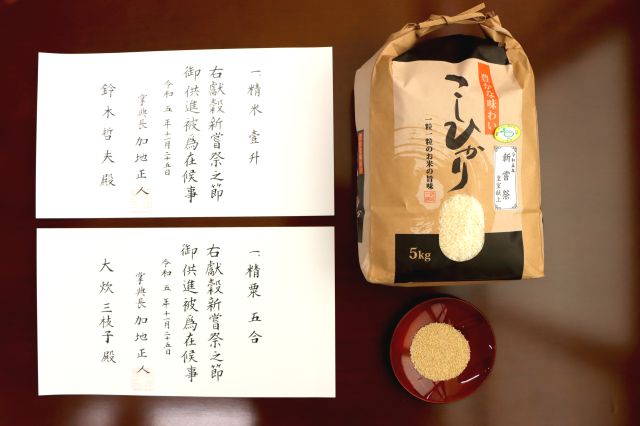 一、精米 壹升
右獻穀新嘗祭之節
御供進被爲在候事
令和五年十一月二十五日
掌典長 加地正人
鈴木哲夫 殿
一、精粟 五合
右獻穀新嘗祭之節
御供進被爲在候事
令和五年十一月二十五日
掌典長 加地正人
大炊三枝子 殿
豊かな味わい
こしひかり
一粒一粒のお米の旨味
新嘗祭
皇室献上
5kg